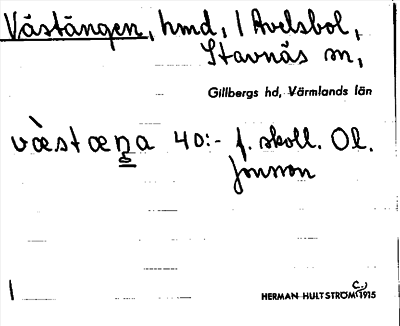 Västängen, hmd, i Avelsbol,
Stavnäs sn,
Gillbergs hd, Värmlands län
væ̀stæŋa 40:- f. skoll. Ol.
Jonsson
HERMAN HULTSTRÖM (C.) 1915